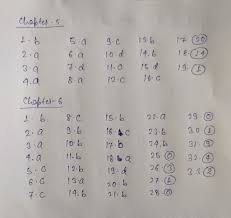 Chapter-5
1. b 5. a 9. c 13. b 17. 30
2. a 6. a 10. d 14. b 18. 24
3. a 7. d 11. c 15. d 19. 1
4. a 8. c 12. c 16. c
Chapter-6
1. b 8. c 15. b 22. a 29. 0
2. a 9. b 16. c 23. b 30. 1
3. a 10. b 17. b 24. b 31. 6
4. a 11. b 18. a 25. 0 32.
5. c 12. b 19. d 26. 33. 2
6. c 13. a 20. b 27. 1
7. c 14. b 21. b 28. 0